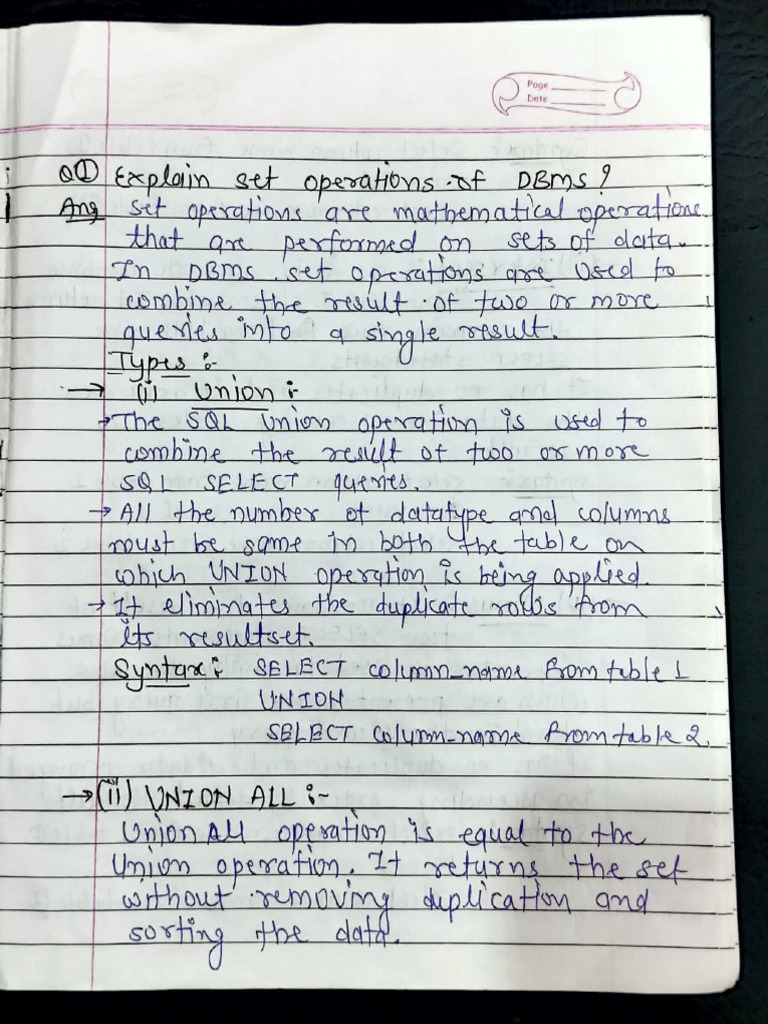 Page
Date
Q① Explain set operations of DBMS?
Ans set operations are mathematical operations
that are performed on sets of data.
In DBMS set operations are used to
combine the result of two or more
queries into a single result.
Types :-
→ (i) Union :-
→ The SQL Union operation is used to
combine the result of two or more
SQL SELECT queries.
→ All the number of datatype and columns
must be same in both the table on
which UNION operation is being applied.
→ It eliminates the duplicate rows from
its resultset.
Syntax :- SELECT column_name from table 1
UNION
SELECT column_name from table 2.
→ (ii) UNION ALL :-
Union All operation is equal to the
Union operation. It returns the set
without removing duplication and
sorting the data.